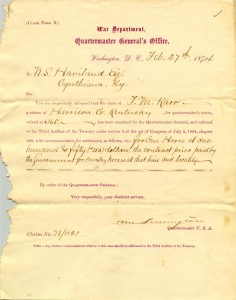 (CLAIM FORM B.)
War Department,
Quartermaster General's Office,
Washington, D. C., Feb. 27th, 1874.
To W.S. Haviland Esq
Cynthiana,
Ky.
SIR:
You are respectfully informed that the claim of T. M. Karr
of Harrison Co, Kentucky, for quartermaster's stores,
valued at $ has been examined by the Quartermaster General, and referred
to the Third Auditor of the Treasury under section 2 of the act of Congress of July 4, 1864, chapter
240, with recommendation for settlement, as follows, viz: for One Horse at one
hundred & fifty dollars, the contract price paid by
the Government for cavalry horses at that time and locality.
By order of the QUARTERMASTER GENERAL:
Very respectfully, your obedient servant,
Quartermaster U. S. A.
Claim No.
NOTE.—Any further communication relative to this case should be addressed to the Third Auditor of the Treasury.